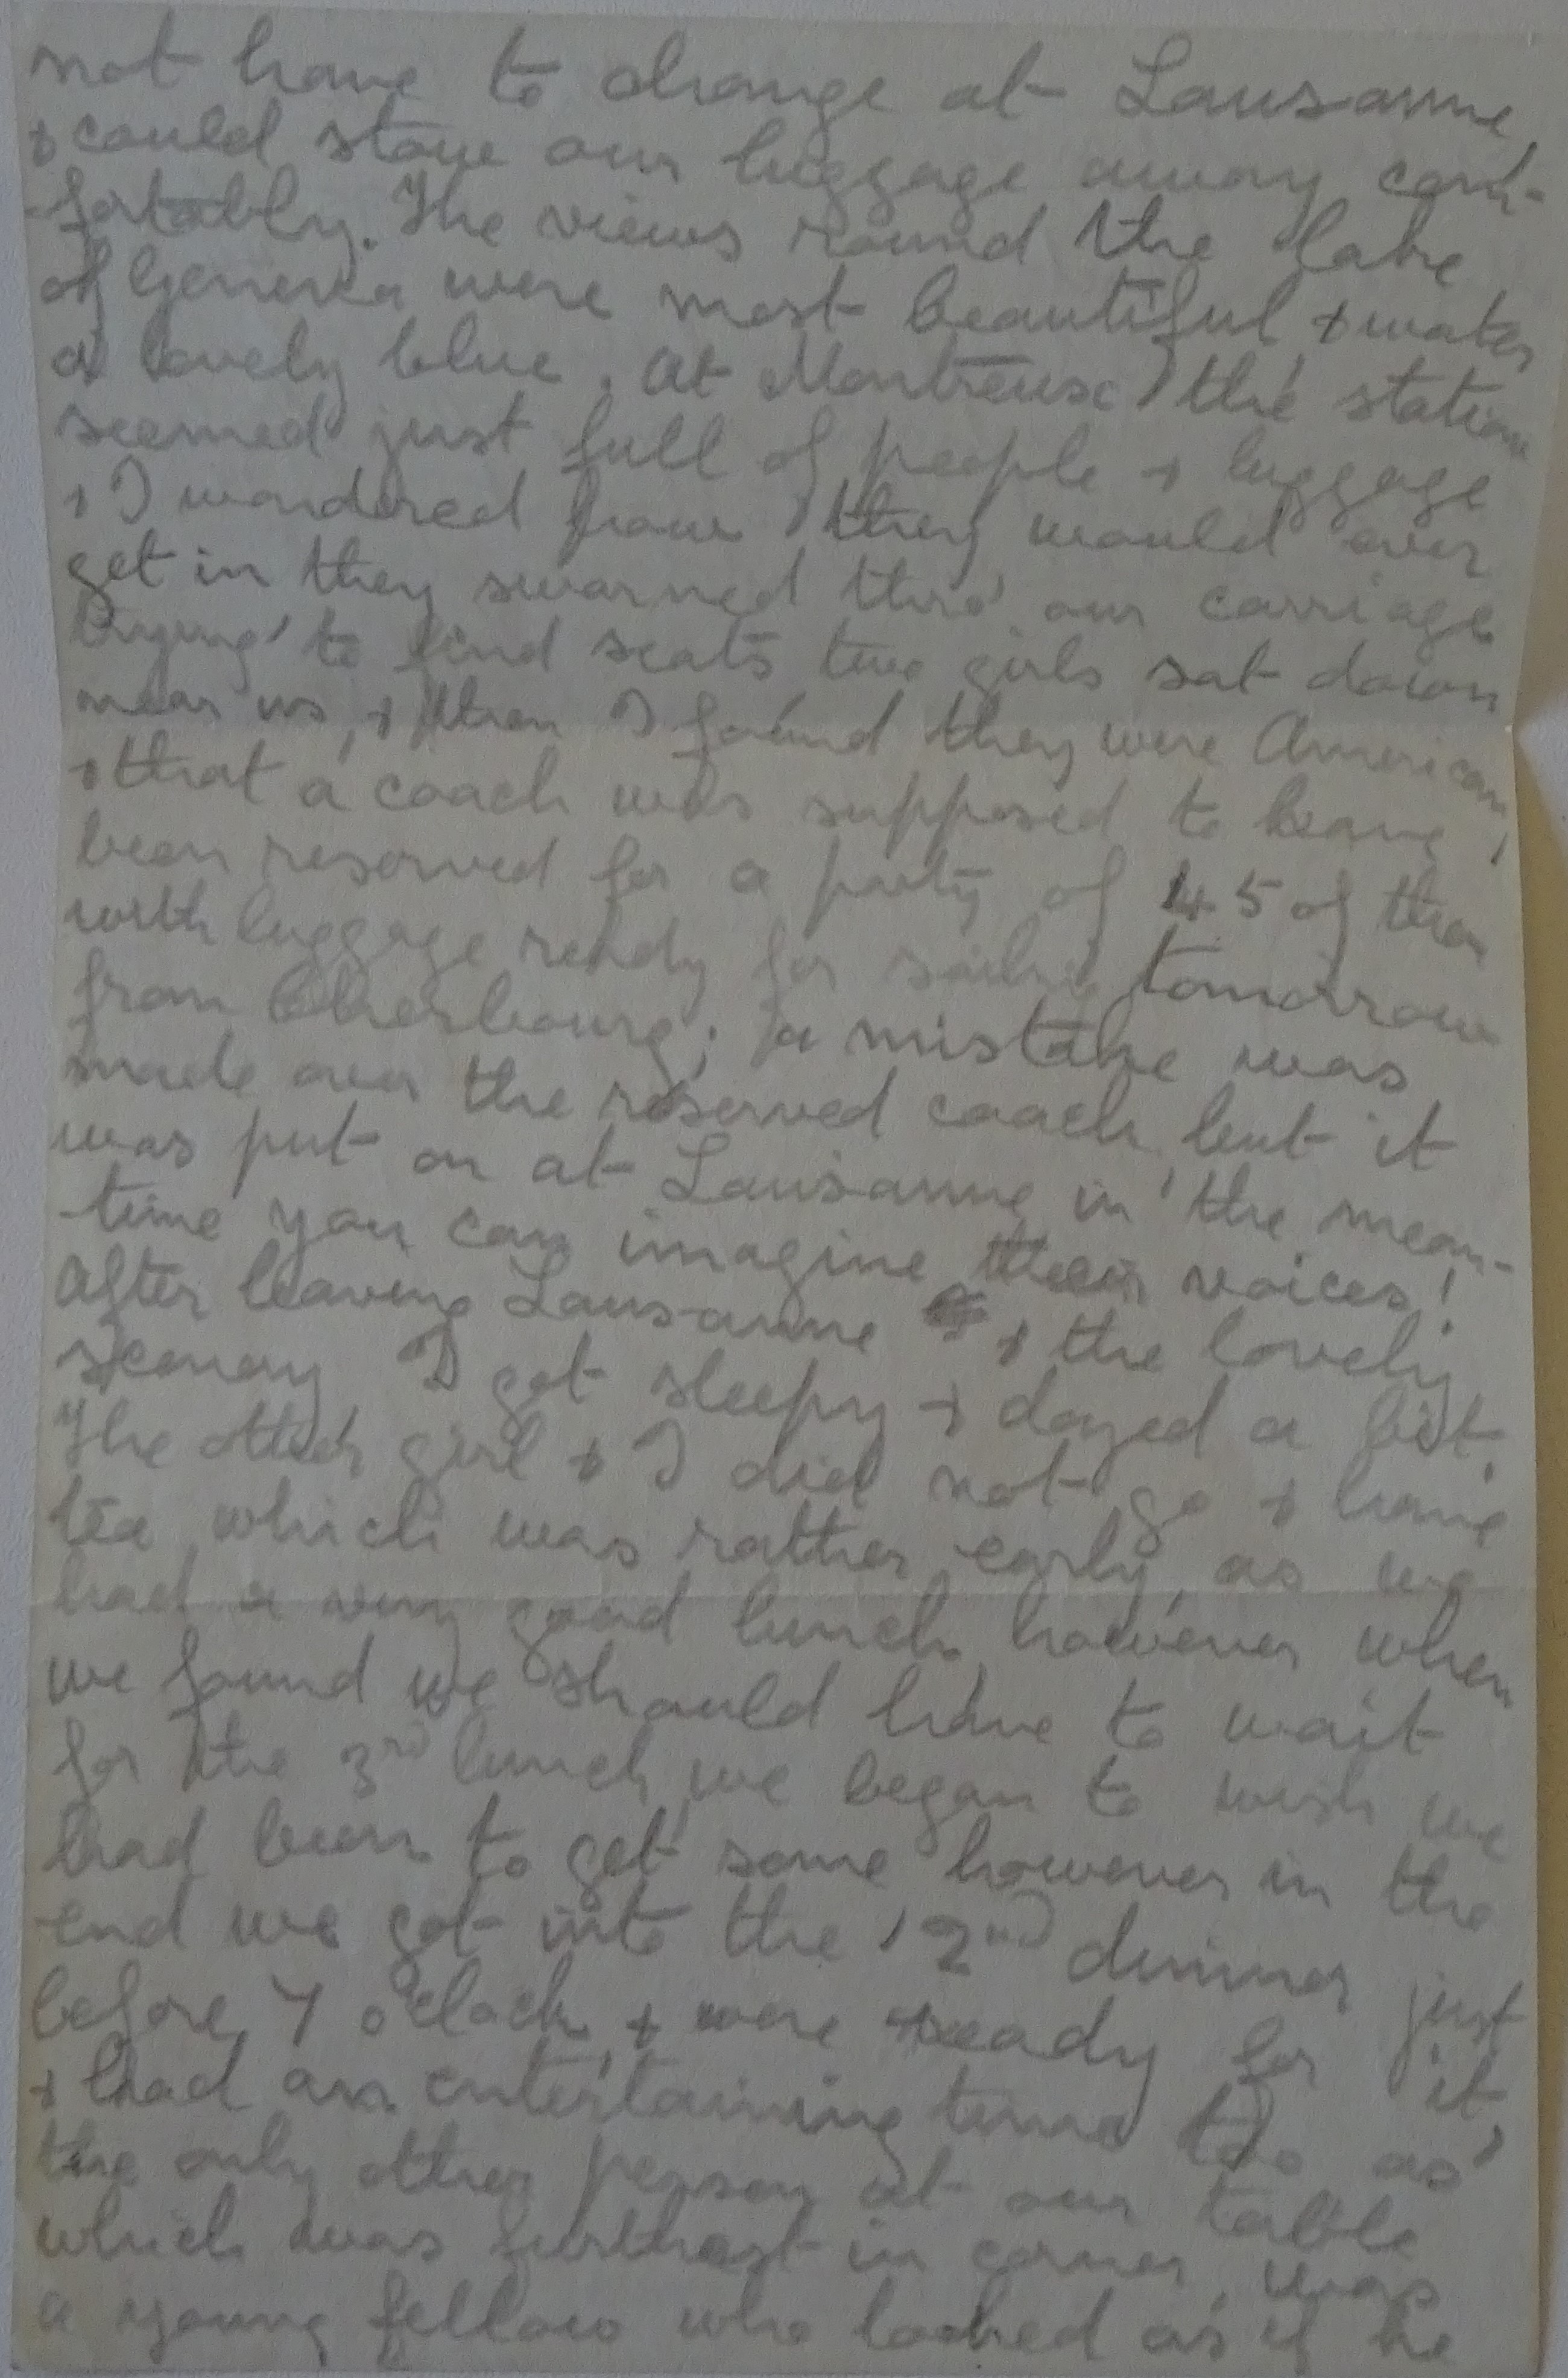 not have to change at Lausanne,
& could stow our luggage away com-
-fortably. The views round the lake
of Geneva were most beautiful & water
a lovely blue. At Montreux the station
seemed just full of people & luggage
& I wondered how they would ever
get in they swarmed thro' our carriage
trying to find seats two girls sat down
near us, & then I found they were American,
& that a coach was supposed to have
been reserved for a party of 45 of them
with luggage ready for sailing tomorrow
from Cherbourg; a mistake was
made over the reserved coach, but it
was put on at Lausanne in the mean-
-time you can imagine their voices!
After leaving Lausanne & the lovely
scenery I got sleepy & dozed a bit.
The other girl & I did not go & have
tea which was rather early, as we
had a very good lunch, however when
we found we should have to wait
for the 3rd lunch, we began to wish we
had been to get some however in the
end we got into the 2nd dinner just
before 7 o'clock, & were ready for it,
& had an entertaining time too as
the only other person at our table
which was furthest in corner, was
a young fellow who looked as if he